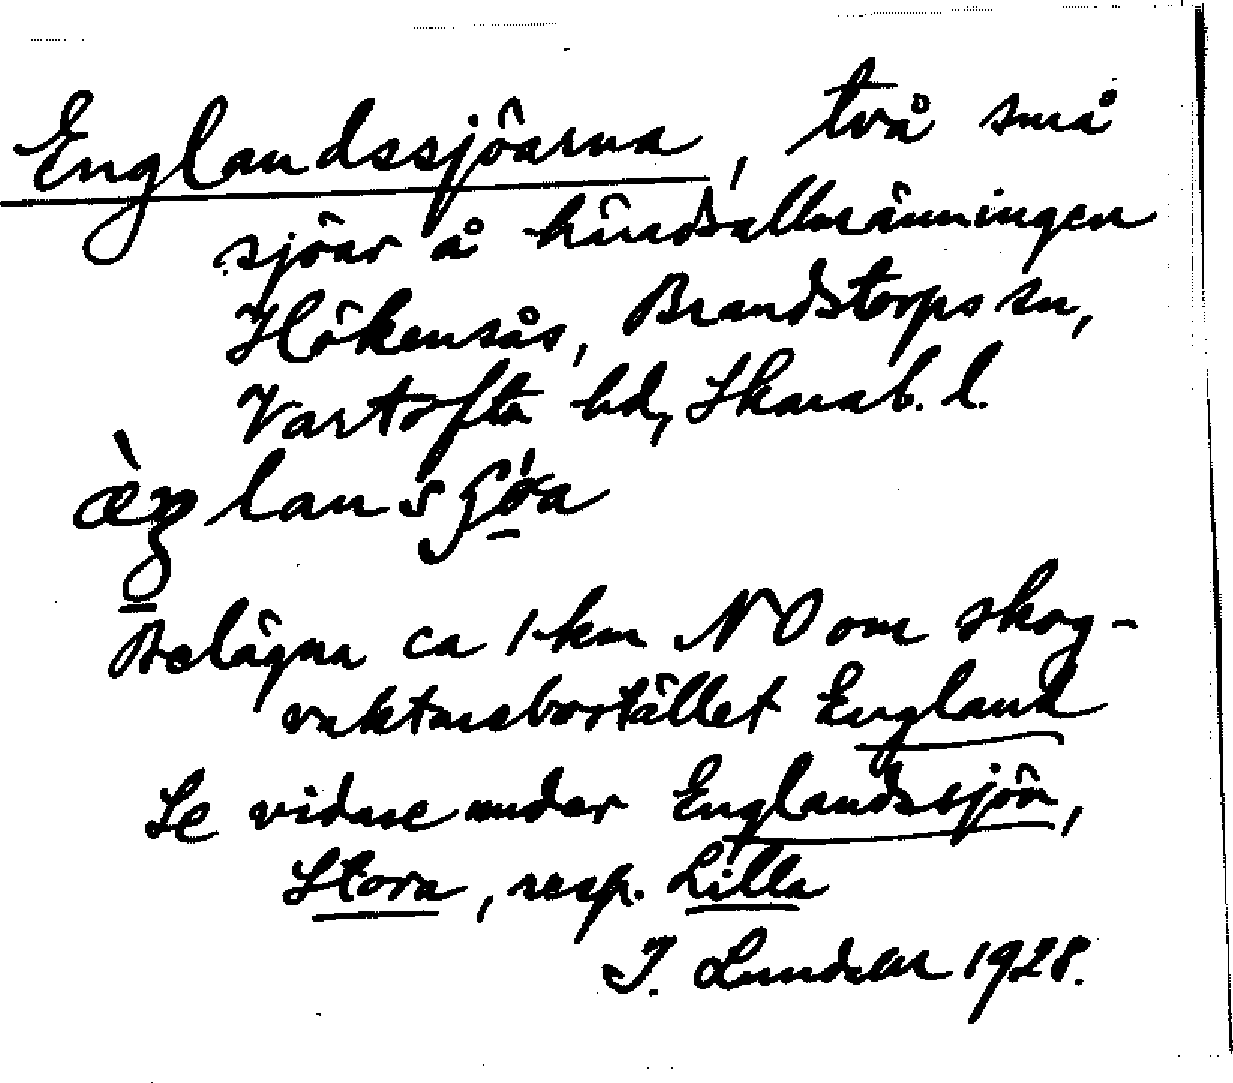 Englandssjöarna, två små
sjöar å häradsallmänningen
Hökensås, Brandstorps sn,
Vartofta hd, Skarab. l.
Belägna ca 1 km NO om skog-
vaktarebostället England
Se vidare under Englandssjön,
Stora, resp. Lilla
J. Lundahl 1928.